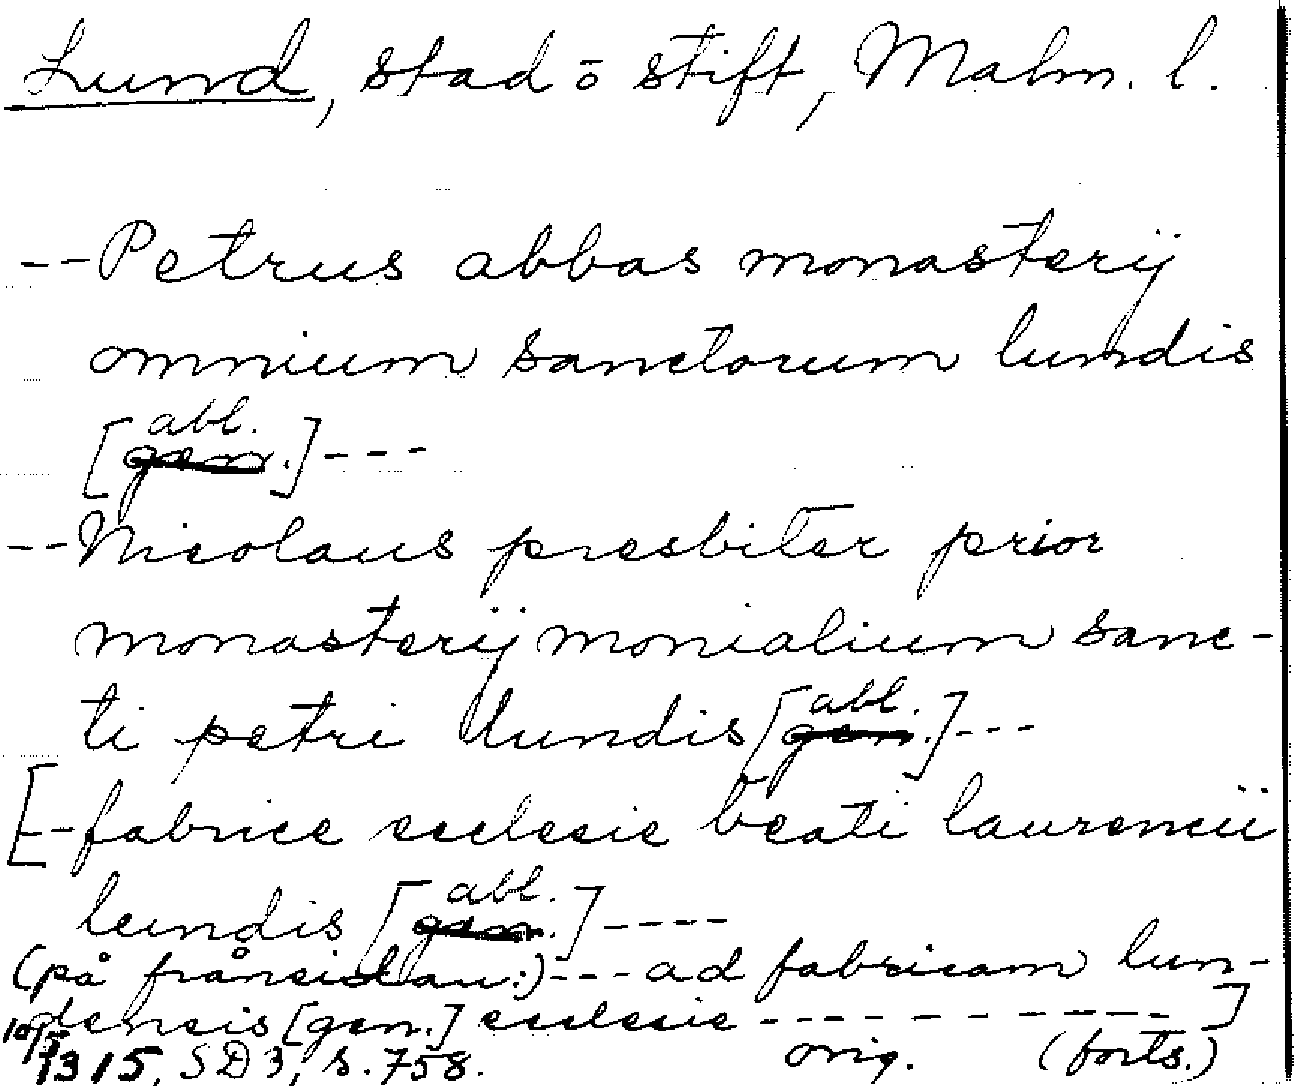 Lund, stad o stift, Malm. l.
--Petrus abbas monasterij
omnium sanctorum lundis
[gen. abl.]---
--Nicolaus presbiter prior
monasterij monialium sanc-
ti petri lundis [gen. abl.]---
[--fabrice ecclesie beati laurencii
lundis [gen. abl.]----
(på frånsidan:)---ad fabricam lun-
densis [gen.] ecclesie ---------]
10/5 1315, SD 3, s. 758. orig. (forts.)